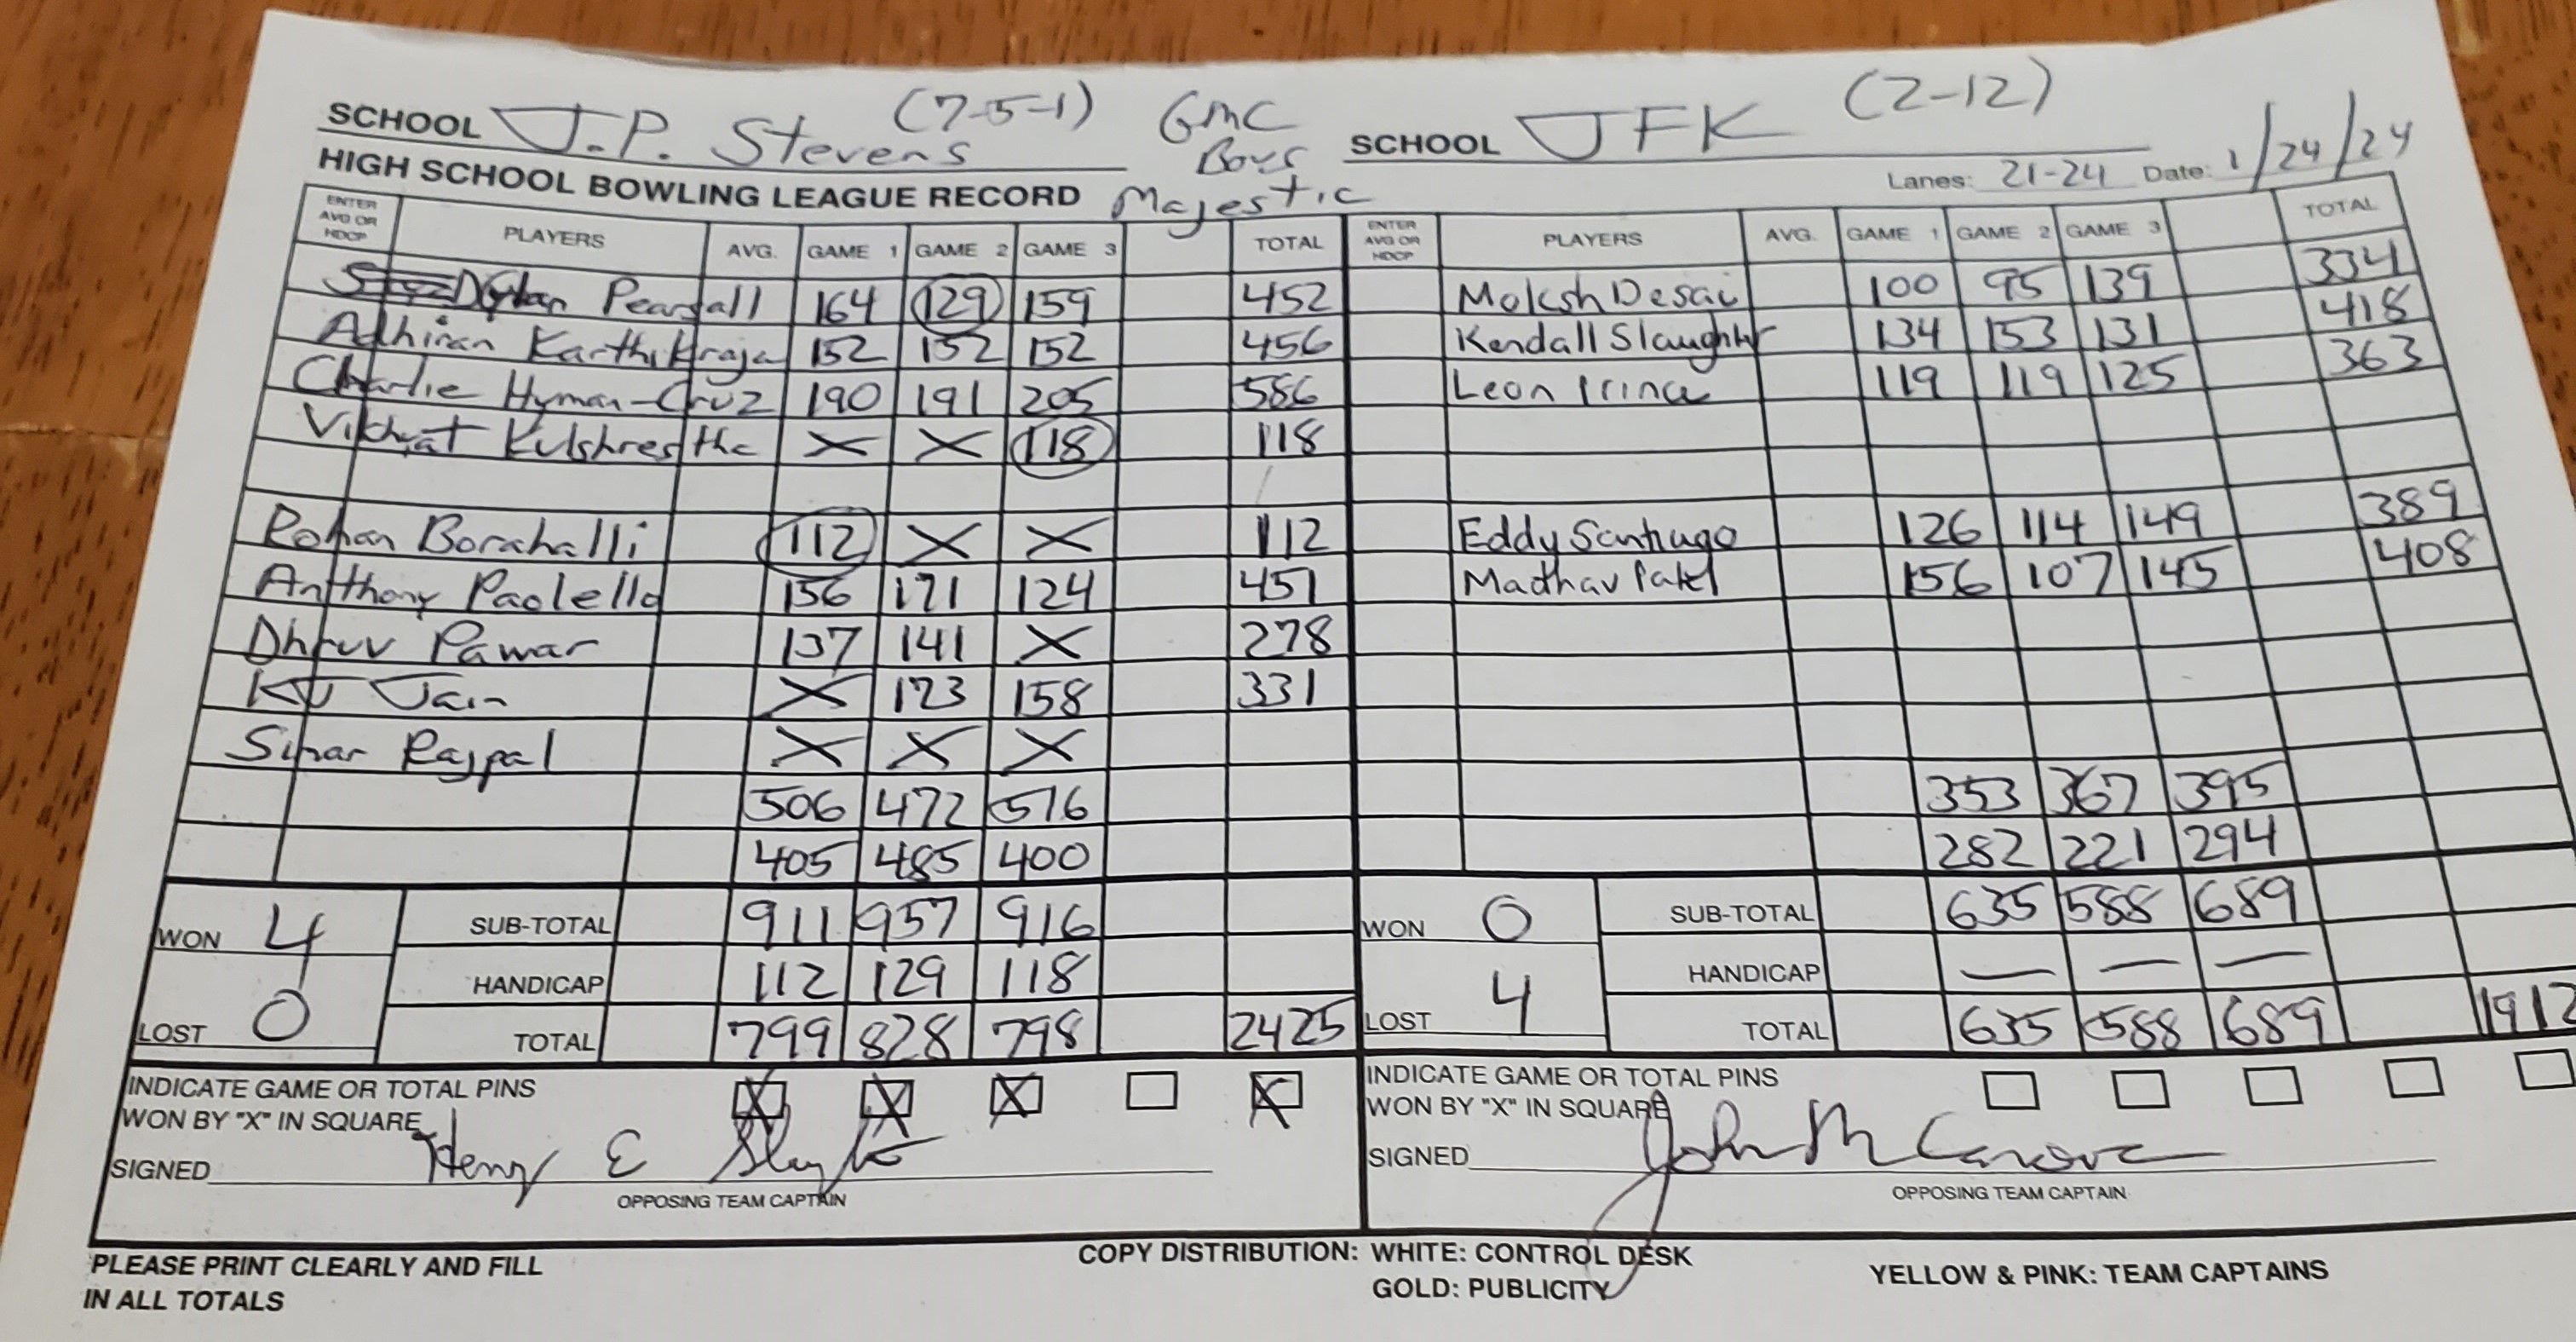 SCHOOL J.P. Stevens (7-5-1) GMC Boys SCHOOL JFK (2-12)
HIGH SCHOOL BOWLING LEAGUE RECORD Majestic Lanes: 21-24 Date: 1/24/24
ENTER AVG OR HDCP PLAYERS AVG. GAME 1 GAME 2 GAME 3 TOTAL ENTER AVG OR HDCP PLAYERS AVG. GAME 1 GAME 2 GAME 3 TOTAL
Dylan Pearsall 164 129 159 452 Moksh Desai 100 95 139 334
Adhiran Karthikraja 152 152 152 456 Kendall Slaughter 134 153 131 418
Charlie Hyman-Cruz 190 191 205 586 Leon Prince 119 119 125 363
Vikhyat Kulshrestha X X 118 118
Rohan Borahalli 112 X X 112 Eddy Santiago 126 114 149 389
Anthony Paolello 156 171 124 451 Madhav Patel 156 107 145 408
Dhruv Pawar 137 141 X 278
KJ Jain X 173 158 331
Rajpal X X X
506 472 516 353 367 395
405 485 400 282 221 294
WON 4 SUB-TOTAL 911 957 916 WON 0 SUB-TOTAL 635 588 689
HANDICAP 112 129 118 HANDICAP — — —
LOST 0 TOTAL 799 828 798 2425 LOST 4 TOTAL 635 588 689 1912
INDICATE GAME OR TOTAL PINS X X X X INDICATE GAME OR TOTAL PINS
WON BY "X" IN SQUARE WON BY "X" IN SQUARE
SIGNED Henry E SIGNED John M
OPPOSING TEAM CAPTAIN OPPOSING TEAM CAPTAIN
PLEASE PRINT CLEARLY AND FILL COPY DISTRIBUTION: WHITE: CONTROL DESK YELLOW & PINK: TEAM CAPTAINS
IN ALL TOTALS GOLD: PUBLICITY